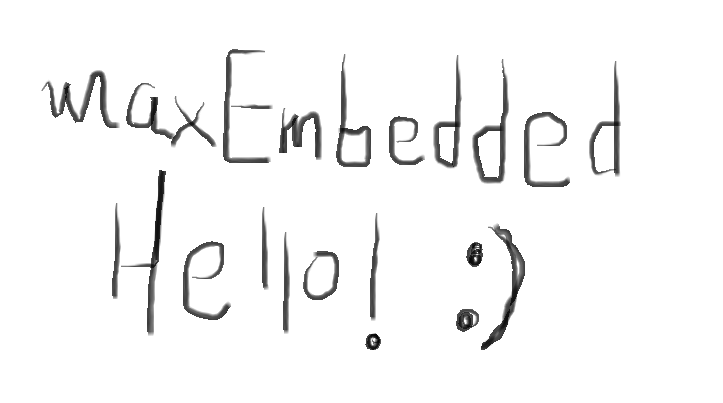 maxEmbedded
Hello! :)